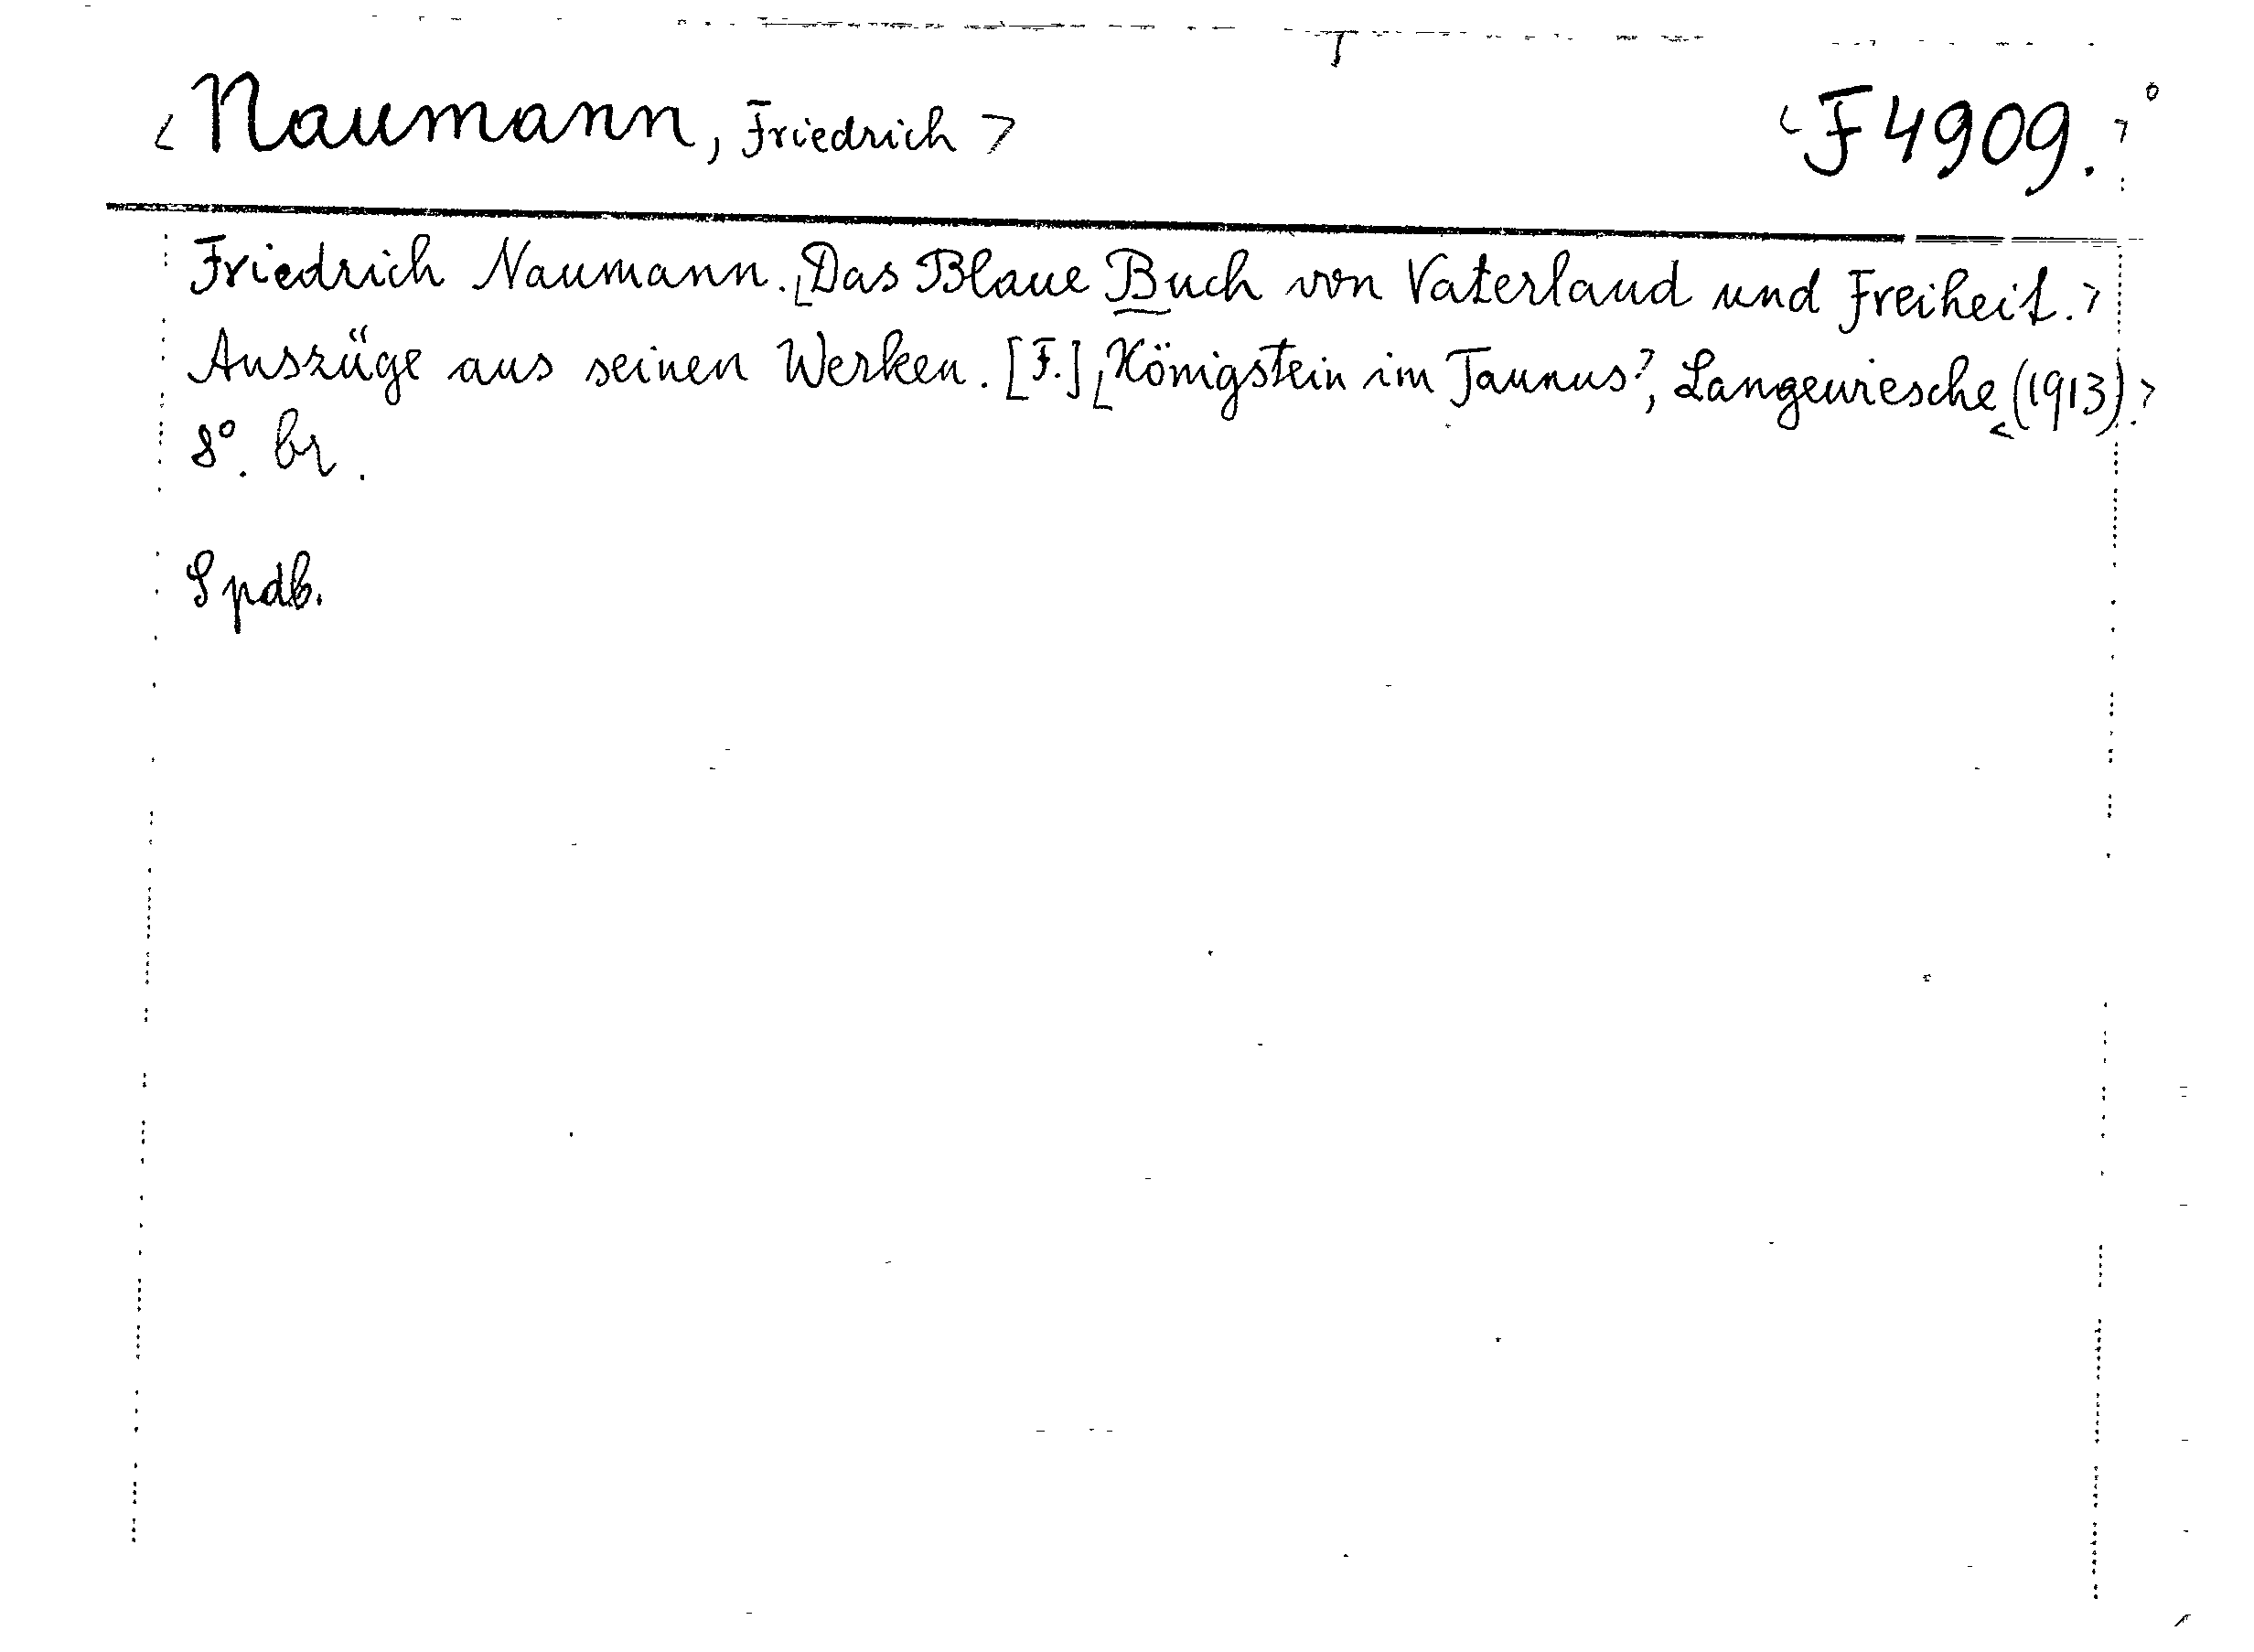 <Naumann, Friedrich> <F 4909.>
Friedrich Naumann. <Das Blaue Buch von Vaterland und Freiheit.>
Auszüge aus seinen Werken. [F.] <Königstein im Taunus>, Langewiesche <(1913).>
8°. br.
Spdb.